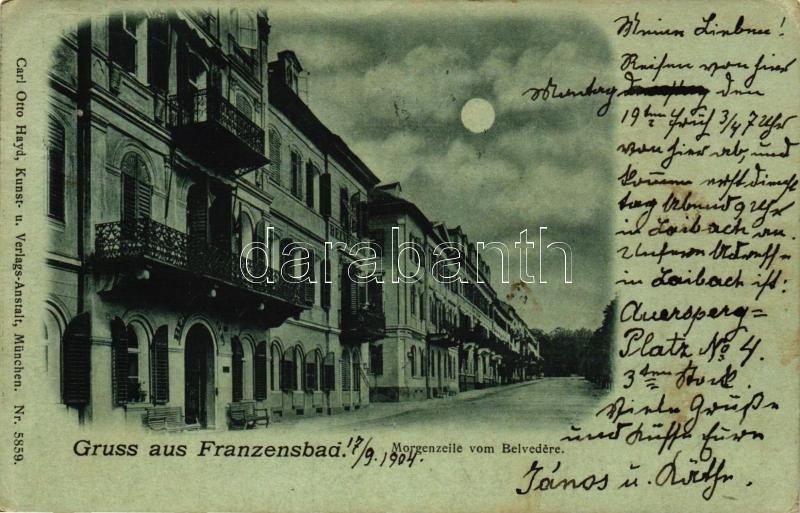 Carl Otto Hayd, Kunst- u. Verlags-Anstalt, München. Nr. 5859.
Meine Lieben!
Reisen von hier
Montag den
19ten früh 3/4 7 Uhr
von hier ab, und
kommen erst diens
tag Abend 9 Uhr
in Laibach an.
Unsere Adresse
in Laibach ist:
Auersperg=
Platz No 4.
3ten Stock.
Viele Grüße
und Küsse Eure
János u. Käthe.
darabanth
Gruss aus Franzensbad. 17/9. 1904.
Morgenzeile vom Belvedère.